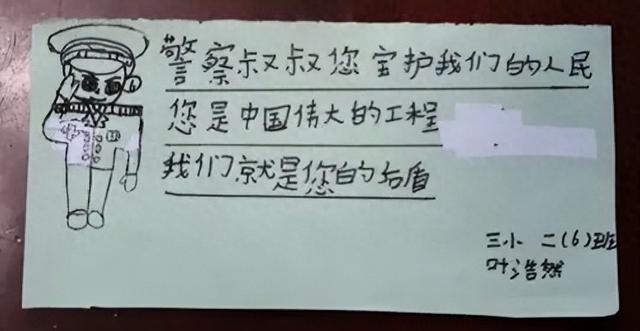 警察叔叔您宝护我们的人民
您是中国伟大的工程
我们就是您的后盾
三小 二(6)班
叶浩然